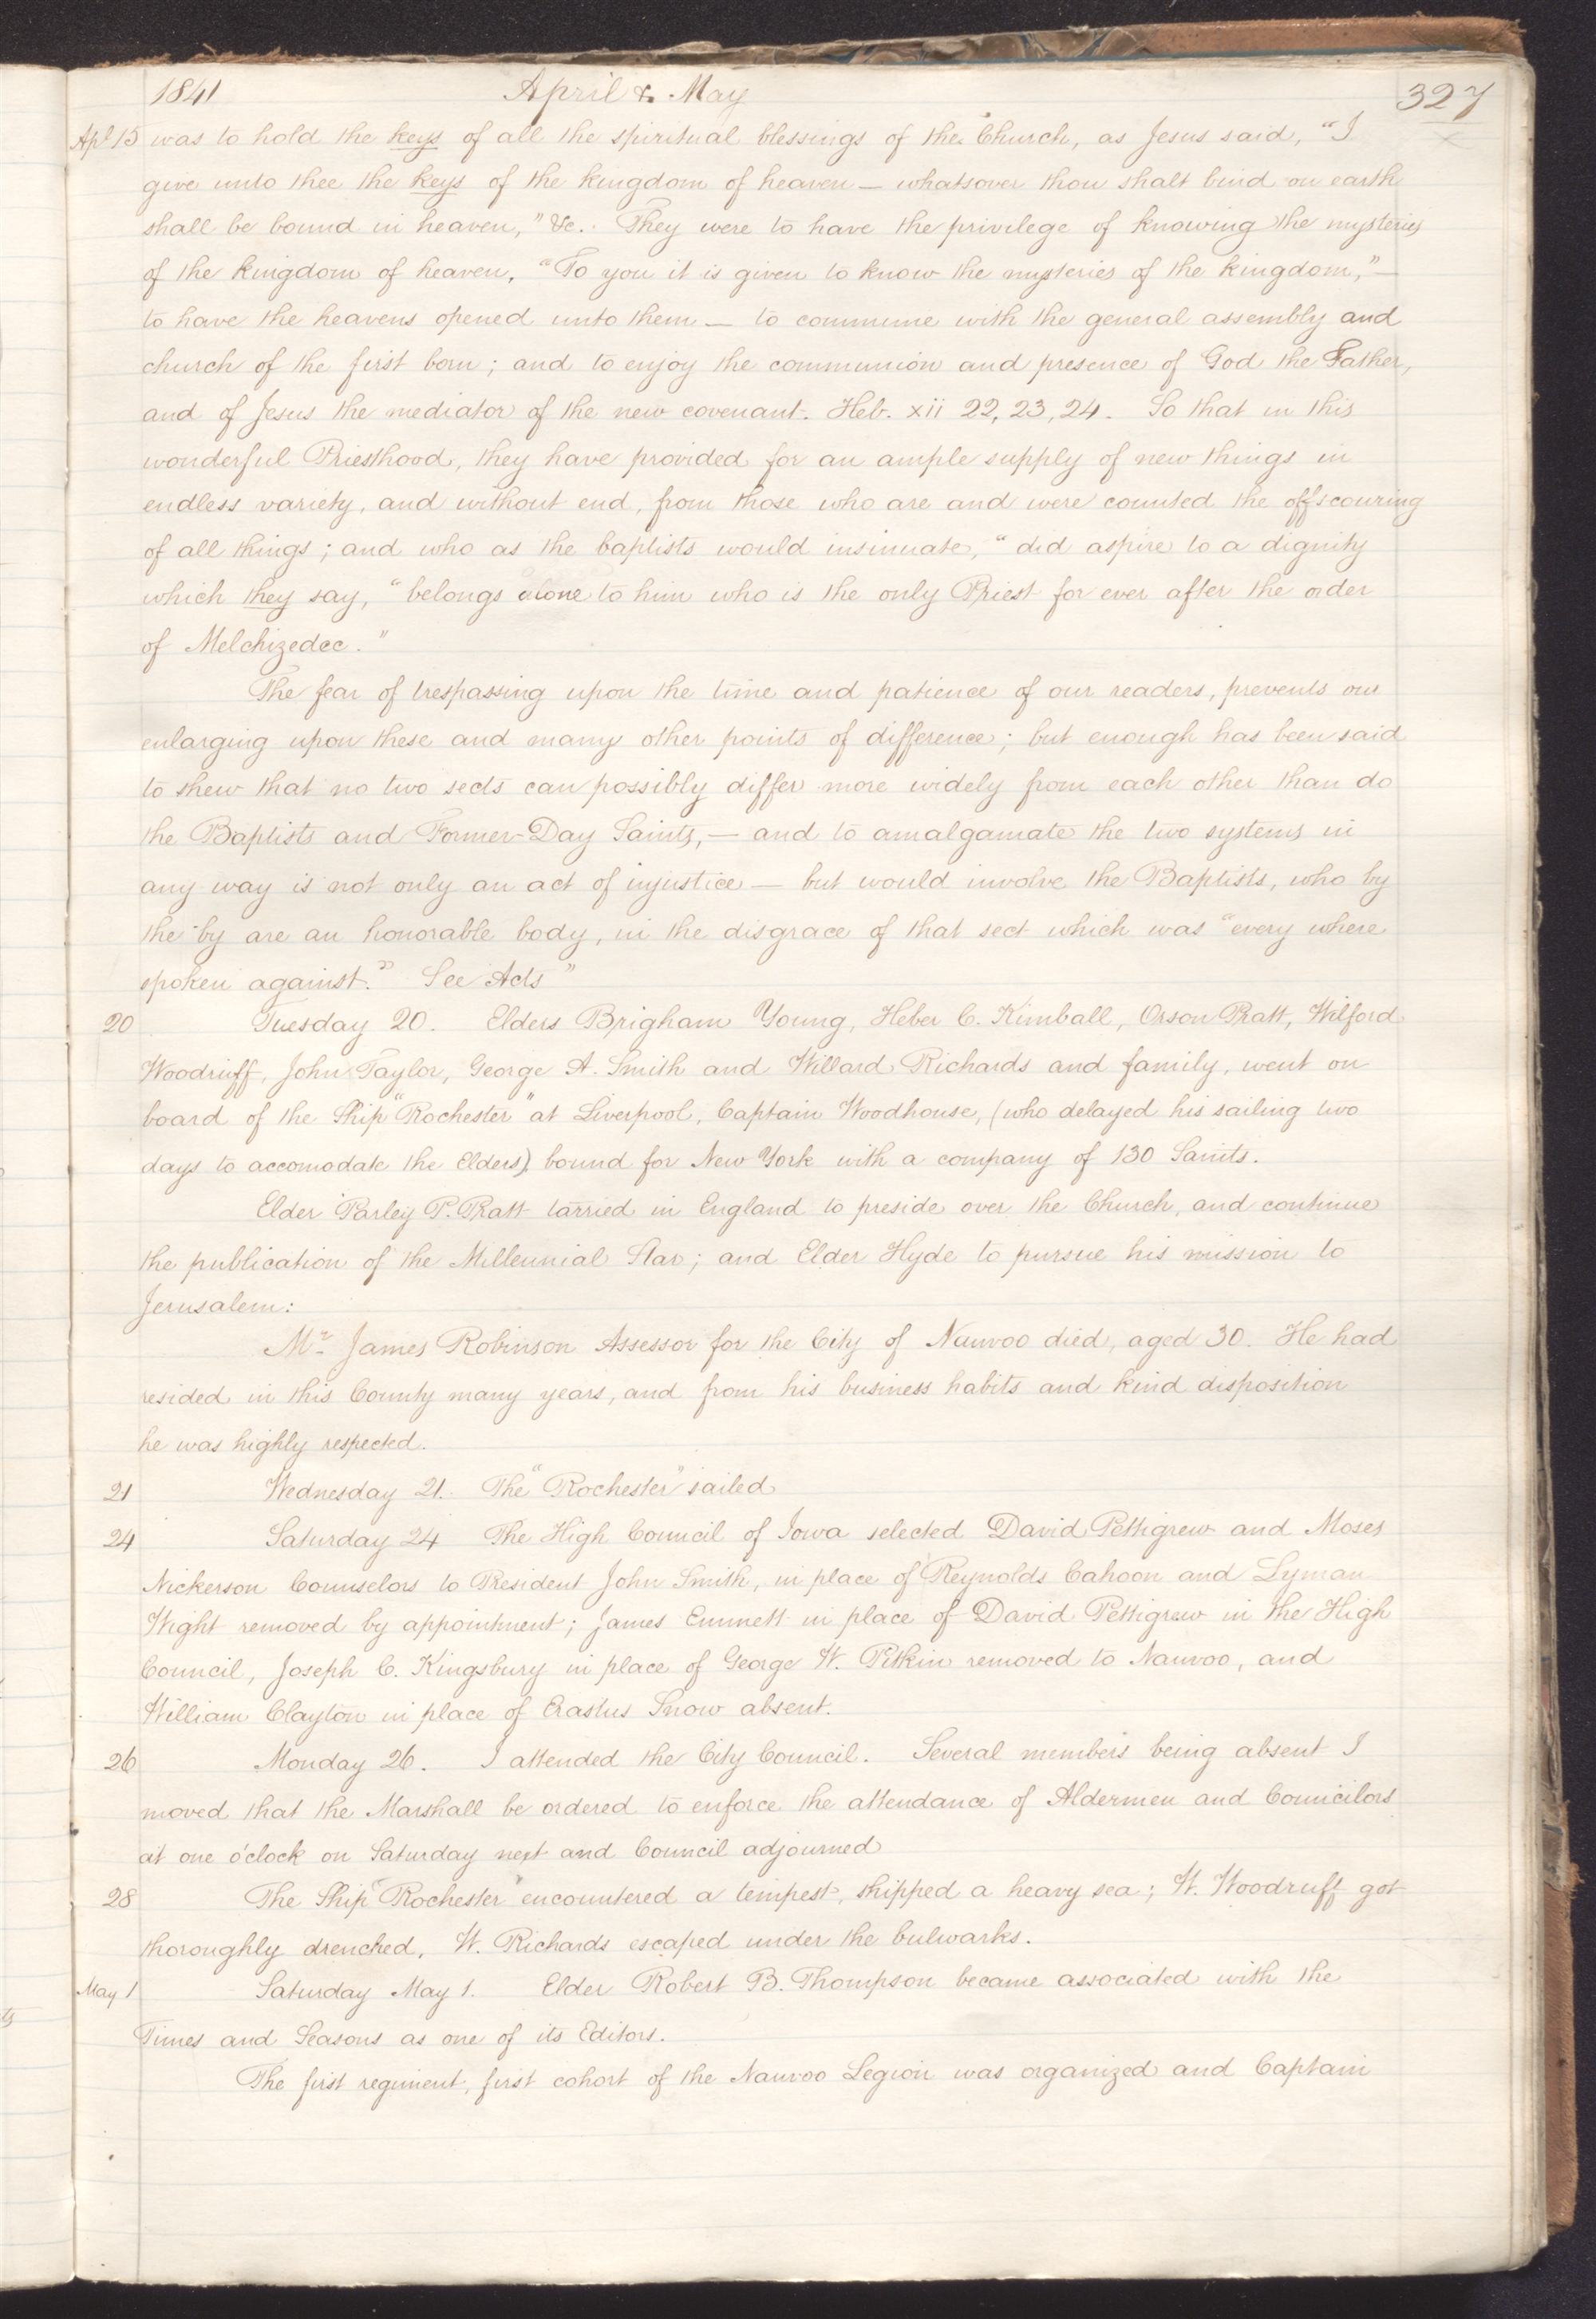 1841 April & May 327
Apl 15 was to hold the keys of all the spiritual blessings of the Church, as Jesus said, "I
give unto thee the keys of the kingdom of heaven — whatsover thou shalt bind on earth
shall be bound in heaven," &c. They were to have the privilege of knowing the mysteries
of the kingdom of heaven. "To you it is given to know the mysteries of the kingdom,"—
to have the heavens opened unto them — to commune with the general assembly and
church of the first born; and to enjoy the communion and presence of God the Father,
and of Jesus the mediator of the new covenant. Heb. xii 22, 23, 24. So that in this
wonderful Priesthood, they have provided for an ample supply of new things in
endless variety, and without end, from those who are and were counted the offscouring
of all things; and who as the baptists would insinuate, "did aspire to a dignity
which they say, "belongs alone to him who is the only Priest for ever after the order
of Melchizedec."
The fear of trespassing upon the time and patience of our readers, prevents our
enlarging upon these and many other points of difference; but enough has been said
to shew that no two sects can possibly differ more widely from each other than do
the Baptists and Former-Day Saints, — and to amalgamate the two systems in
any way is not only an act of injustice — but would involve the Baptists, who by
the by are an honorable body, in the disgrace of that sect which was "every where
spoken against." See Acts"
20 Tuesday 20. Elders Brigham Young, Heber C. Kimball, Orson Pratt, Wilford
Woodruff, John Taylor, George A. Smith and Willard Richards and family, went on
board of the Ship "Rochester" at Liverpool, Captain Woodhouse, (who delayed his sailing two
days to accomodate the Elders) bound for New York with a company of 130 Saints.
Elder Parley P. Pratt tarried in England to preside over the Church, and continue
the publication of the Millennial Star; and Elder Hyde to pursue his mission to
Jerusalem:
Mr James Robinson Assessor for the City of Nauvoo died, aged 30. He had
resided in this County many years, and from his business habits and kind disposition
he was highly respected.
21 Wednesday 21. The "Rochester" sailed
24 Saturday 24 The High Council of Iowa selected David Pettigrew and Moses
Nickerson Counselors to President John Smith, in place of Reynolds Cahoon and Lyman
Wight removed by appointment; James Emmett in place of David Pettigrew in the High
Council, Joseph C. Kingsbury in place of George W. Pitkin removed to Nauvoo, and
William Clayton in place of Erastus Snow absent.
26 Monday 26. I attended the City Council. Several members being absent I
moved that the Marshall be ordered to enforce the attendance of Aldermen and Councilors
at one o'clock on Saturday next and Council adjourned
28 The Ship "Rochester" encountered a tempest, shipped a heavy sea; W. Woodruff got
thoroughly drenched, W. Richards escaped under the bulwarks.
May 1 Saturday May 1. Elder Robert B. Thompson became associated with the
Times and Seasons as one of its Editors.
The first regiment, first cohort of the Nauvoo Legion was organized and Captain